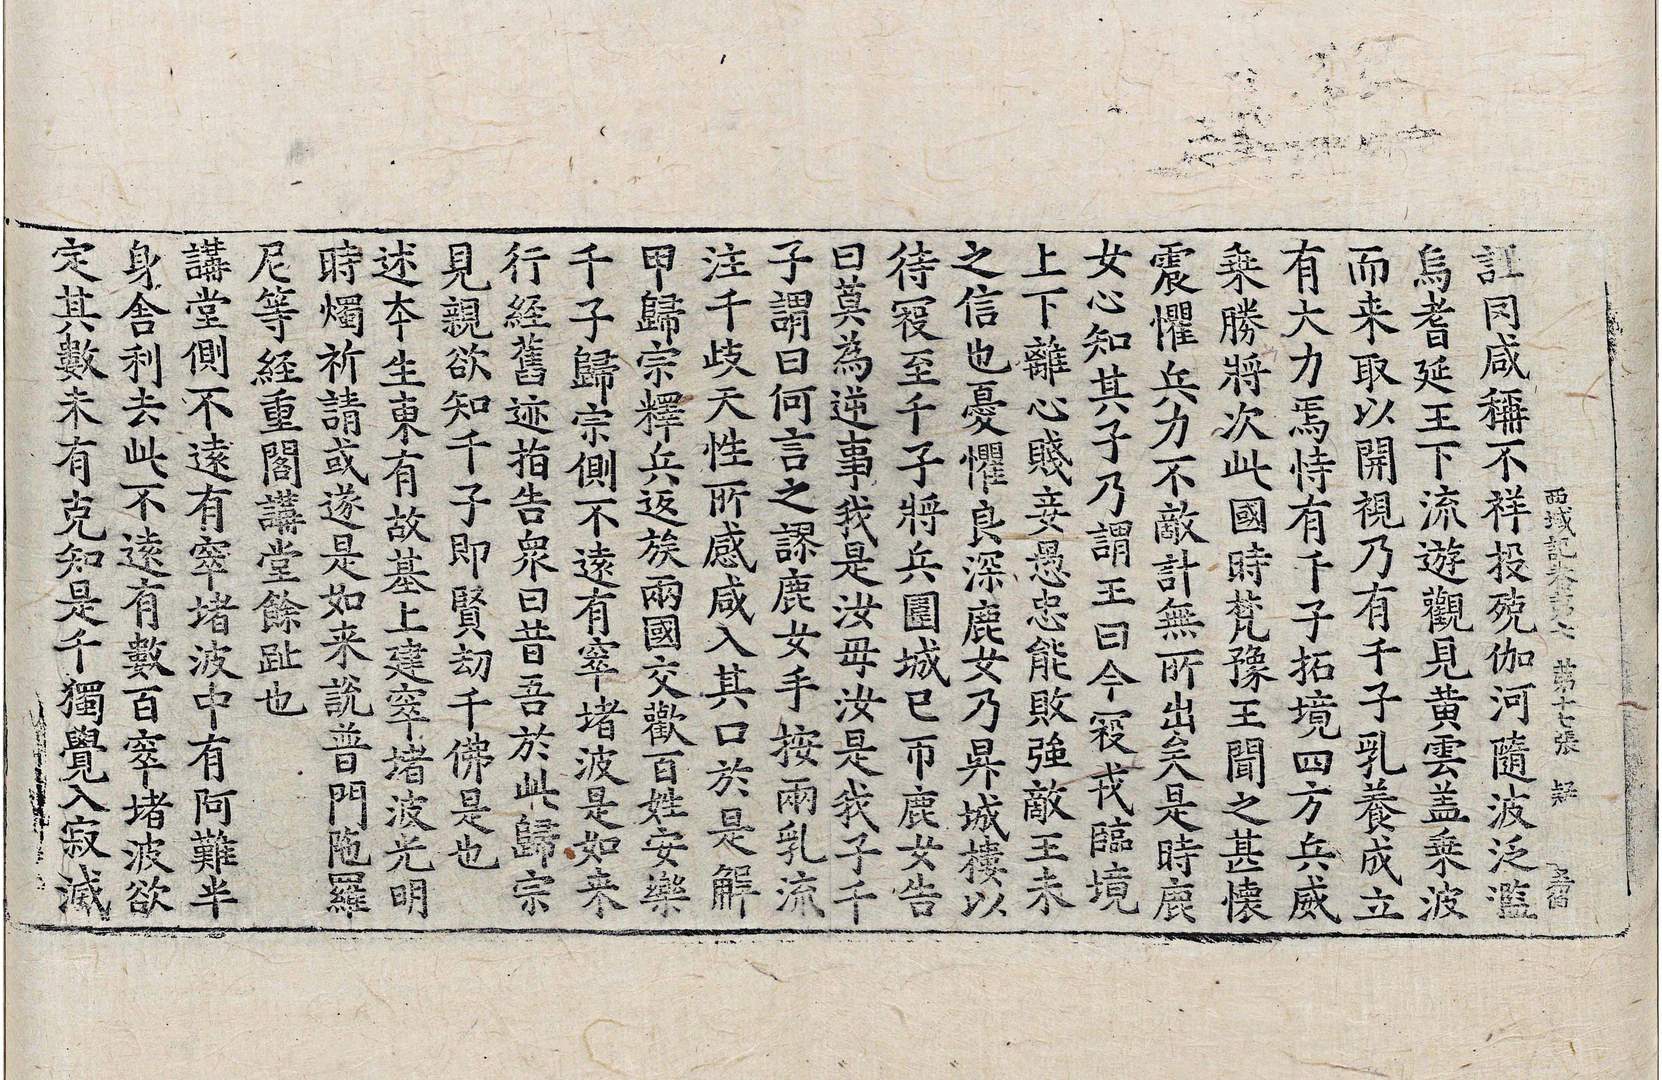 西域記卷第七　第十七張　疑
訌罔咸稱不祥投殑伽河隨波泛濫
烏耆延王下流遊觀見黃雲盖乗波
而来取以開視乃有千子乳養成立
有大力焉恃有千子拓境四方兵威
乗勝將次此國時梵豫王聞之甚懷
震懼兵力不敵計無所出矣是時鹿
女心知其子乃謂王曰今寇戎臨境
上下離心賤妾愚忠能敗強敵王未
之信也憂懼良深鹿女乃昇城樓以
待寇至千子將兵圍城已帀鹿女告
曰莫為逆事我是汝母汝是我子千
子謂曰何言之謬鹿女手按兩乳流
注千歧天性所感咸入其口於是解
甲歸宗釋兵返族兩國交歡百姓安樂
千子歸宗側不遠有窣堵波是如来
行經舊迹指告衆曰昔吾於此歸宗
見親欲知千子即賢劫千佛是也
述夲生東有故基上建窣堵波光明
時燭祈請或遂是如来說普門陁羅
尼等経重閣講堂餘趾也
講堂側不遠有窣堵波中有阿難半
身舎利去此不遠有數百窣堵波欲
定其數未有克知是千獨覺入寂滅